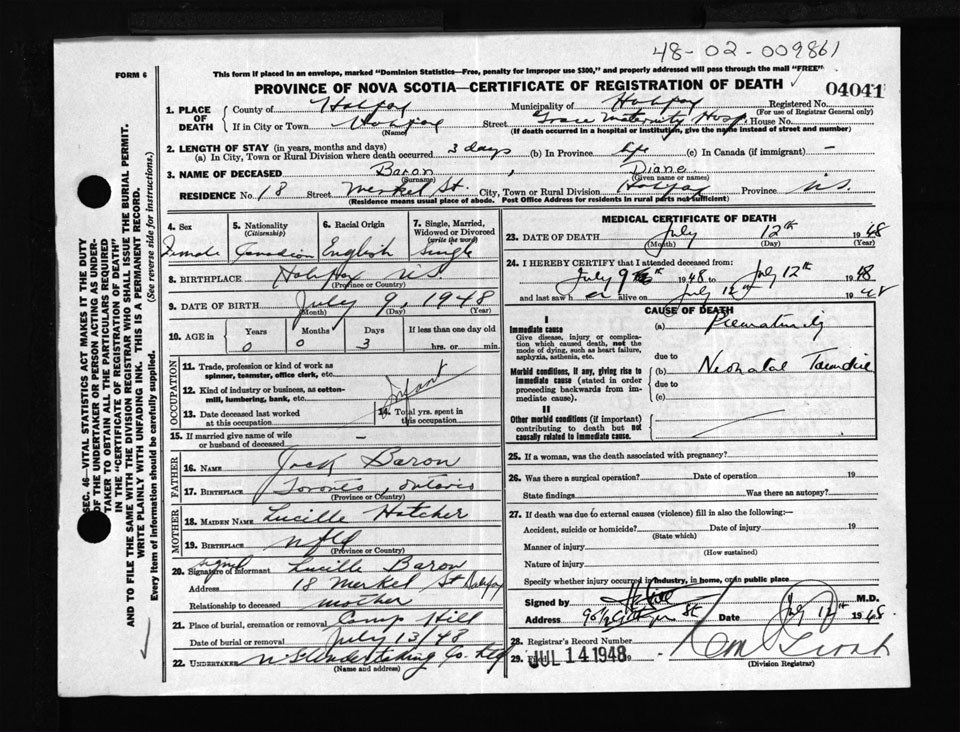 48-02-009861
FORM 6
This form if placed in an envelope, marked "Dominion Statistics—Free, penalty for improper use $300," and properly addressed will pass through the mail "FREE"
PROVINCE OF NOVA SCOTIA—CERTIFICATE OF REGISTRATION OF DEATH
04041
1. PLACE OF DEATH
County of Halifax Municipality of Halifax Registered No.
(For use of Registrar General only)
If in City or Town Halifax Street Grace Maternity Hosp. House No.
(Name) (If death occurred in a hospital or institution, give the name instead of street and number)
2. LENGTH OF STAY (in years, months and days)
(a) In City, Town or Rural Division where death occurred 3 days (b) In Province life (c) In Canada (if immigrant) —
3. NAME OF DECEASED Baron, Diane
(Surname) (Given name or names)
RESIDENCE No. 18 Street Merkel St. City, Town or Rural Division Halifax Province N.S.
(Residence means usual place of abode. Post Office Address for residents in rural parts not sufficient)
4. Sex
Female
5. Nationality
(Citizenship)
Canadian
6. Racial Origin
English
7. Single, Married, Widowed or Divorced
(write the word)
Single
8. BIRTHPLACE Halifax NS
(Province or Country)
9. DATE OF BIRTH July 9, 1948
(Month) (Day) (Year)
10. AGE in
Years Months Days If less than one day old
0 0 3 hrs. or min.
OCCUPATION
11. Trade, profession or kind of work as spinner, teamster, office clerk, etc.
12. Kind of industry or business, as cotton-mill, lumbering, bank, etc.
Infant
13. Date deceased last worked at this occupation
14. Total yrs. spent in this occupation
15. If married give name of wife or husband of deceased —
FATHER
16. NAME Jack Baron
17. BIRTHPLACE Toronto, Ontario
(Province or Country)
MOTHER
18. MAIDEN NAME Lucille Hatcher
19. BIRTHPLACE Nfld
(Province or Country)
signed
20. Signature of Informant Lucille Baron
Address 18 Merkel St Halifax
Relationship to deceased mother
21. Place of burial, cremation or removal Camp Hill
Date of burial or removal July 13/48
22. UNDERTAKER N S Undertaking Co. Ltd
(Name and address)
MEDICAL CERTIFICATE OF DEATH
23. DATE OF DEATH July 12th 1948
(Month) (Day) (Year)
24. I HEREBY CERTIFY that I attended deceased from:
July 9th 1948 to July 12th 1948
and last saw her alive on July 12th 1948
CAUSE OF DEATH
I
Immediate cause
Give disease, injury or complication which caused death, not the mode of dying, such as heart failure, asphyxia, asthenia, etc.
(a) Prematurity
due to
Morbid conditions, if any, giving rise to immediate cause (stated in order proceeding backwards from immediate cause).
(b) Neonatal Jaundice
due to
(c)
II
Other morbid conditions (if important) contributing to death but not causally related to immediate cause.
25. If a woman, was the death associated with pregnancy?
26. Was there a surgical operation? Date of operation 19
State findings Was there an autopsy?
27. If death was due to external causes (violence) fill in also the following:—
Accident, suicide or homicide? Date of injury 19
(State which)
Manner of injury
(How sustained)
Nature of injury
Specify whether injury occurred in industry, in home, or in public place
Signed by M.D.
Address Date July 12th 1948
28. Registrar's Record Number
29. Filed JUL 14 1948 19
(Division Registrar)
SEC. 46—VITAL STATISTICS ACT MAKES IT THE DUTY
OF THE UNDERTAKER OR PERSON ACTING AS UNDER-
TAKER TO OBTAIN ALL THE PARTICULARS REQUIRED
IN THE "CERTIFICATE OF REGISTRATION OF DEATH"
AND TO FILE THE SAME WITH THE DIVISION REGISTRAR WHO SHALL ISSUE THE BURIAL PERMIT.
WRITE PLAINLY WITH UNFADING INK. THIS IS A PERMANENT RECORD.
Every item of information should be carefully supplied. (See reverse side for instructions.)